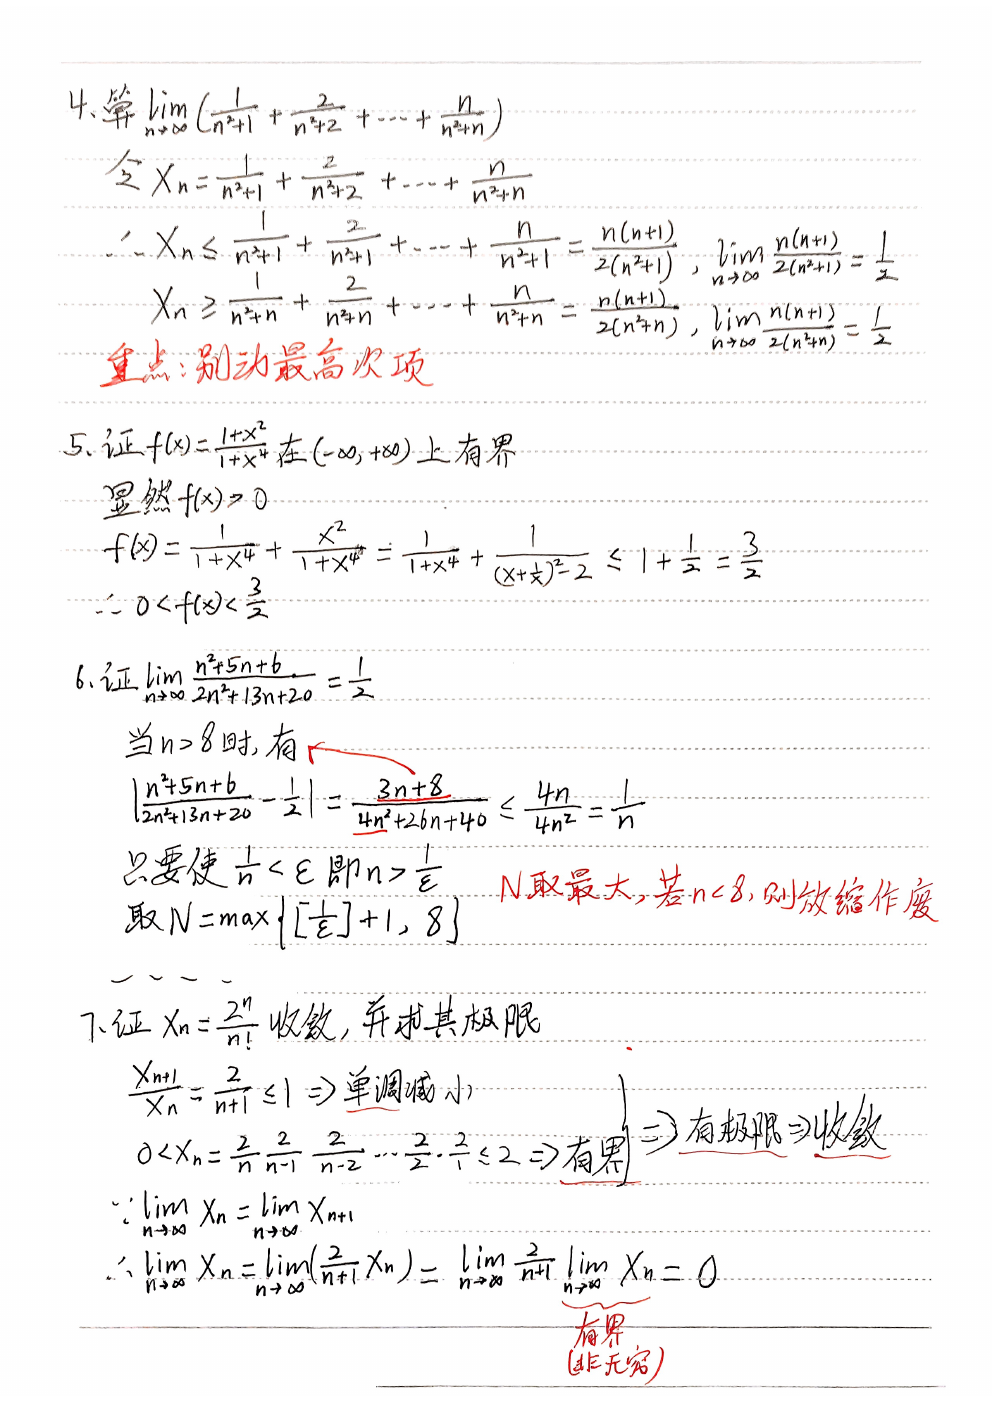 4、算 lim n→∞ (1/(n²+1) + 2/(n²+2) + ··· + n/(n²+n))
令 Xn = 1/(n²+1) + 2/(n²+2) + ··· + n/(n²+n)
∴ Xn ≤ 1/(n²+1) + 2/(n²+1) + ··· + n/(n²+1) = n(n+1)/2(n²+1) , lim n→∞ n(n+1)/2(n²+1) = 1/2
Xn ≥ 1/(n²+n) + 2/(n²+n) + ··· + n/(n²+n) = n(n+1)/2(n²+n) , lim n→∞ n(n+1)/2(n²+n) = 1/2
重点:别动最高次项
5、证 f(x) = (1+x²)/(1+x⁴) 在 (-∞, +∞) 上有界
显然 f(x) > 0
f(x) = 1/(1+x⁴) + x²/(1+x⁴) = 1/(1+x⁴) + 1/((x+1/x)²-2) ≤ 1 + 1/2 = 3/2
∴ 0 < f(x) < 3/2
6、证 lim n→∞ (n²+5n+6)/(2n²+13n+20) = 1/2
当 n > 8 时, 有
|(n²+5n+6)/(2n²+13n+20) - 1/2| = (3n+8)/(4n²+26n+40) ≤ 4n/4n² = 1/n
只要使 1/n < ε 即 n > 1/ε
N取最大, 若n<8, 则放缩作废
取 N = max{[1/ε]+1, 8}
7、证 Xn = 2ⁿ/n! 收敛, 并求其极限
Xn+1/Xn = 2/(n+1) ≤ 1 ⇒ 单调减小
0 < Xn = 2/n 2/(n-1) 2/(n-2) ··· 2/2 · 2/1 ≤ 2 ⇒ 有界 ⇒ 有极限 ⇒ 收敛
∵ lim n→∞ Xn = lim n→∞ Xn+1
∴ lim n→∞ Xn = lim n→∞ (2/(n+1) Xn) = lim n→∞ 2/(n+1) lim n→∞ Xn = 0
有界
(非无穷)